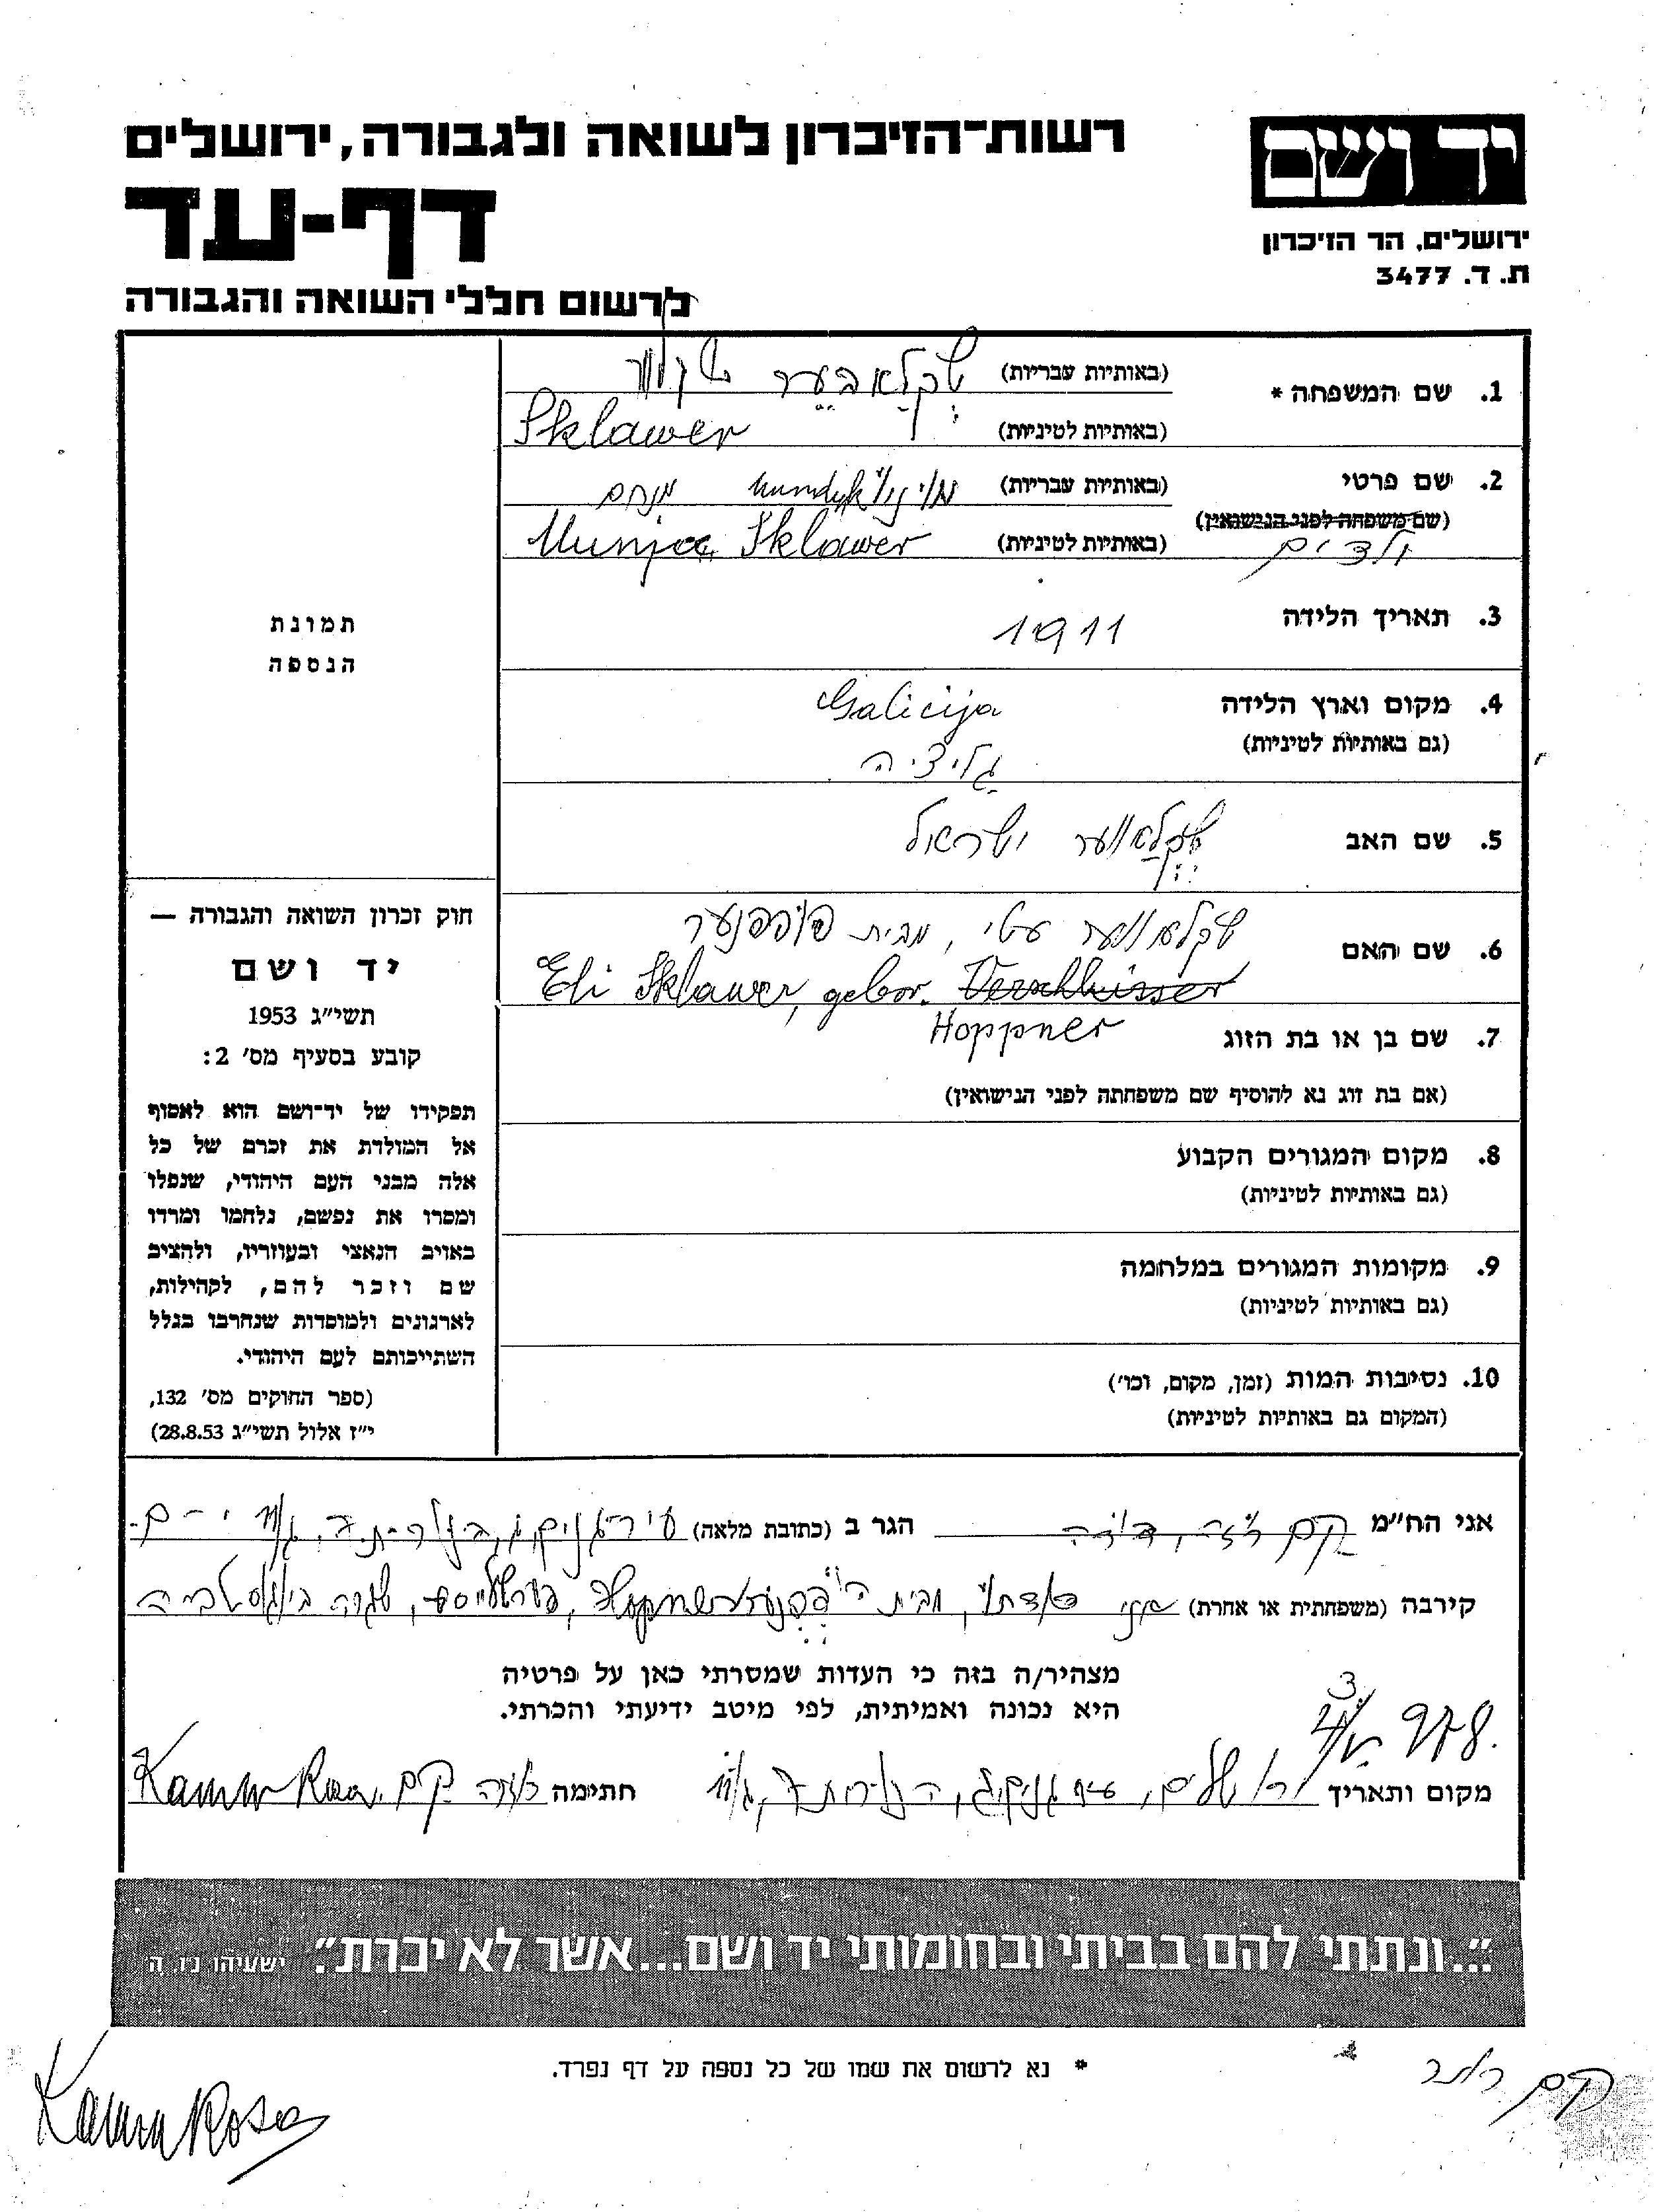 רשות־הזיכרון לשואה ולגבורה, ירושלים
דף-עד
לרשום חללי השואה והגבורה
יד ושם
ירושלים, הר הזיכרון
ת. ד. 3477
1. שם המשפחה *
(באותיות עבריות) שקלאבער
(באותיות לטיניות) Sklawer
2. שם פרטי
(באותיות עבריות) מנחם
(שם משפחה לפני הנישואין)
(באותיות לטיניות) Munja Sklawer
ילדים
3. תאריך הלידה 1911
4. מקום וארץ הלידה Galicija
(גם באותיות לטיניות) גליציה
5. שם האב שקלאווער ישראל
6. שם האם שקלאווער עטי, מבית
Eti Sklawer, gebor. Verschleisser
Hoppner
7. שם בן או בת הזוג
(אם בת זוג נא להוסיף שם משפחתה לפני הנישואין)
8. מקום המגורים הקבוע
(גם באותיות לטיניות)
9. מקומות המגורים במלחמה
(גם באותיות לטיניות)
10. נסיבות המות (זמן, מקום, וכו')
(המקום גם באותיות לטיניות)
תמונת
הנספה
חוק זכרון השואה והגבורה —
יד ושם
תשי"ג 1953
קובע בסעיף מס' 2:
תפקידו של יד־ושם הוא לאסוף
אל המולדת את זכרם של כל
אלה מבני העם היהודי, שנפלו
ומסרו את נפשם, נלחמו ומרדו
באויב הנאצי ובעוזריו, ולהציב
שם וזכר להם, לקהילות,
לארגונים ולמוסדות שנחרבו בגלל
השתייכותם לעם היהודי.
(ספר החוקים מס' 132,
י"ז אלול תשי"ג 28.8.53)
אני הח"מ קם הגר ב (כתובת מלאה) עיר גנים
קירבה (משפחתית או אחרת) אני מבית
מצהיר/ה בזה כי העדות שמסרתי כאן על פרטיה
היא נכונה ואמיתית, לפי מיטב ידיעתי והכרתי.
מקום ותאריך ירושלים, 978. חתימה רוזה קם. Kamm Rosa
"...ונתתי להם בביתי ובחומותי יד ושם...אשר לא יכרת". ישעיהו נו, ה
* נא לרשום את שמו של כל נספה על דף נפרד.
Kamm Rosa
קם